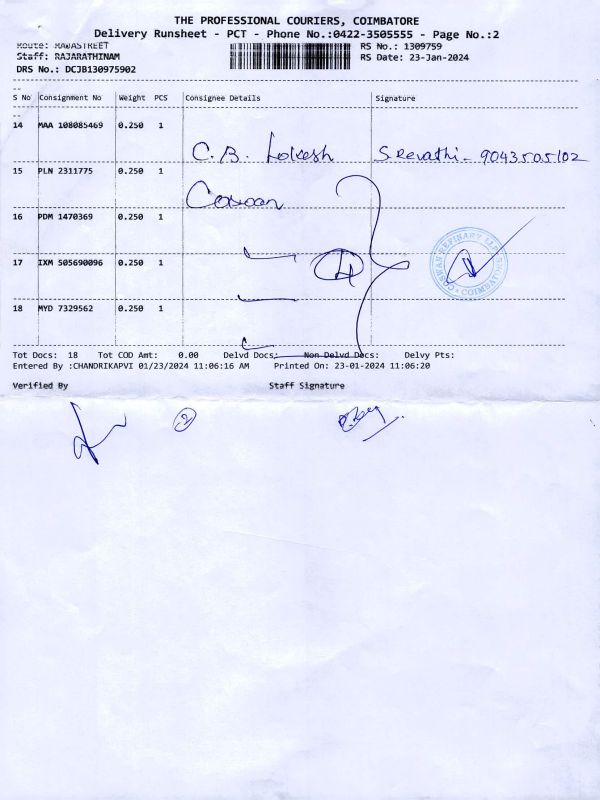 THE PROFESSIONAL COURIERS, COIMBATORE
Delivery Runsheet - PCT - Phone No.:0422-3505555 - Page No.:2
Route: RAJASTREET RS No.: 1309759
Staff: RAJARATHINAM RS Date: 23-Jan-2024
DRS No.: DCJB130975902
S No Consignment No Weight PCS Consignee Details Signature
14 MAA 108085469 0.250 1
C.B. Lokesh S.Revathi - 9043505102
15 PLN 2311775 0.250 1
16 PDM 1470369 0.250 1
17 IXM 505690096 0.250 1
18 MYD 7329562 0.250 1
REFINARY LLP
COIMBATORE
Tot Docs: 18 Tot COD Amt: 0.00 Delvd Docs: Non Delvd Docs: Delvy Pts:
Entered By :CHANDRIKAPVI 01/23/2024 11:06:16 AM Printed On: 23-01-2024 11:06:20
Verified By Staff Signature